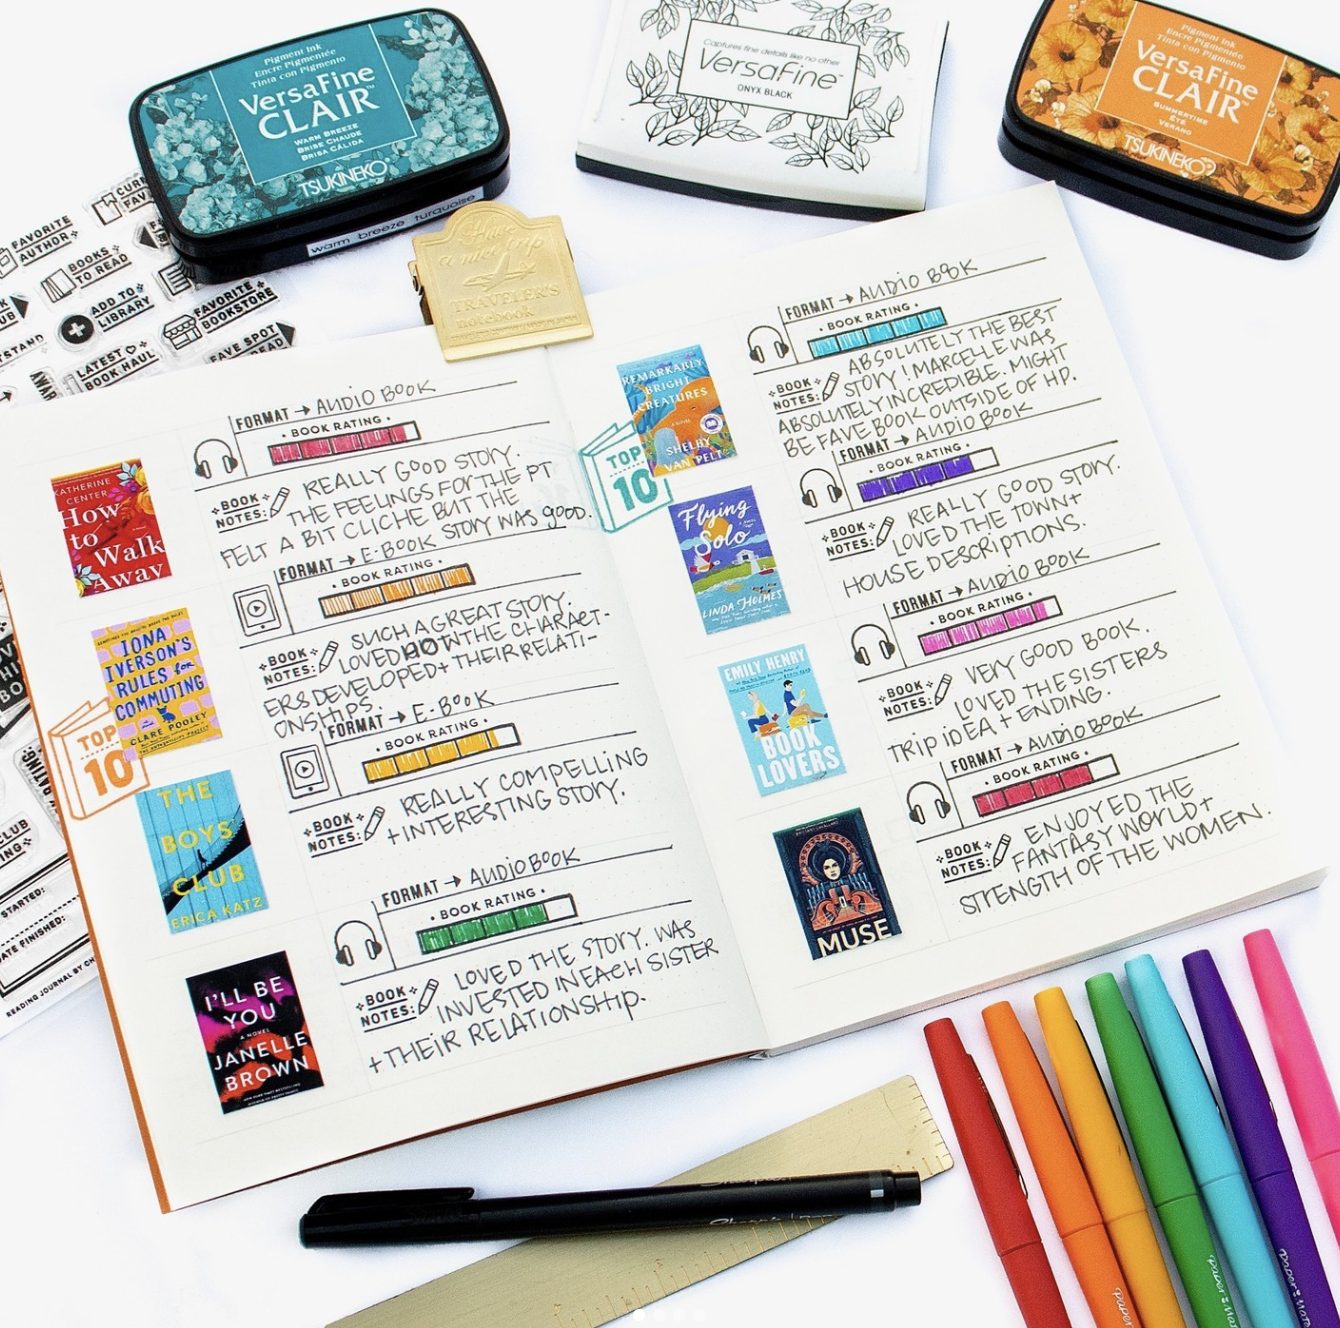 Pigment Ink
Encre Pigmentée
Tinta con Pigmento
VersaFine
CLAIR™
WARM BREEZE
BRISE CHAUDE
BRISA CÁLIDA
TSUKINEKO®
warm breeze turquoise
Captures fine details like no other
VersaFine™
ONYX BLACK
Pigment Ink
Encre Pigmentée
Tinta con Pigmento
VersaFine
CLAIR™
SUMMERTIME
ÉTÉ
VERANO
TSUKINEKO®
FAVORITE
AUTHOR
BOOKS
TO READ
ADD TO
LIBRARY
FAVORITE
BOOKSTORE
LATEST
BOOK HAUL
FAVE SPOT
STARTED:
DATE FINISHED:
READING JOURNAL BY
a nice trip
TRAVELER'S
notebook
KATHERINE
CENTER
How
to
Walk
Away
FORMAT → AUDIO BOOK
• BOOK RATING •
BOOK
NOTES:
REALLY GOOD STORY.
THE FEELINGS FOR THE PT
FELT A BIT CLICHE BUT THE
STORY WAS GOOD.
IONA
IVERSON'S
RULES for
COMMUTING
CLARE POOLEY
TOP
10
FORMAT → E-BOOK
• BOOK RATING •
BOOK
NOTES:
SUCH A GREAT STORY.
LOVED HOW THE CHARACT-
ERS DEVELOPED + THEIR RELATI-
ONSHIPS.
THE
BOYS
CLUB
ERICA KATZ
FORMAT → E-BOOK
• BOOK RATING •
BOOK
NOTES:
REALLY COMPELLING
+ INTERESTING STORY.
I'LL BE
YOU
A NOVEL
JANELLE
BROWN
FORMAT → AUDIO BOOK
• BOOK RATING •
BOOK
NOTES:
LOVED THE STORY. WAS
INVESTED IN EACH SISTER
+ THEIR RELATIONSHIP.
REMARKABLY
BRIGHT
CREATURES
A NOVEL
SHELBY
VAN PELT
TOP
10
FORMAT → AUDIO BOOK
• BOOK RATING •
BOOK
NOTES:
ABSOLUTELY THE BEST
STORY! MARCELLE WAS
ABSOLUTELY INCREDIBLE. MIGHT
BE FAVE BOOK OUTSIDE OF HP.
Flying
Solo
LINDA HOLMES
FORMAT → AUDIO BOOK
• BOOK RATING •
BOOK
NOTES:
REALLY GOOD STORY.
LOVED THE TOWN +
HOUSE DESCRIPTIONS.
EMILY HENRY
BOOK
LOVERS
FORMAT → AUDIO BOOK
• BOOK RATING •
BOOK
NOTES:
VERY GOOD BOOK.
LOVED THE SISTERS
TRIP IDEA + ENDING.
MUSE
FORMAT → AUDIO BOOK
• BOOK RATING •
BOOK
NOTES:
ENJOYED THE
FANTASY WORLD +
STRENGTH OF THE WOMEN.